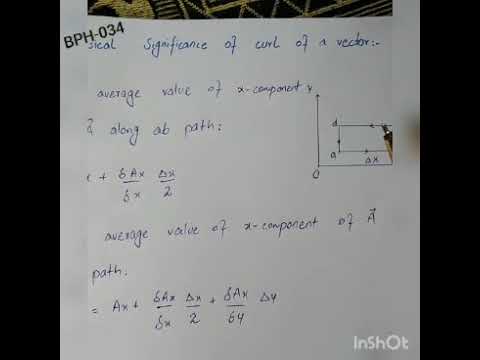 BPH-034
sical Significance of curl of a vector:-
average value of x-component
along ab path:
+ δAx/δx Δx/2
y
d
a
Δx
O
average value of x-component of A⃗
path.
= Ax + δAx/δx Δx/2 + δAx/δy Δy
InShOt